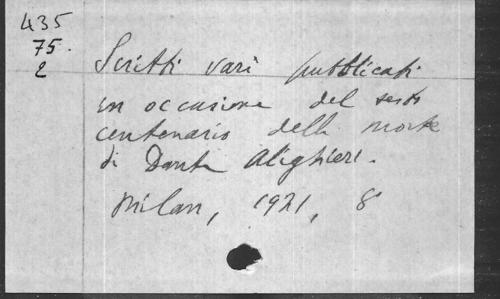 435
75.
2
Scritti vari pubblicati
in occasione del sesto
centenario della morte
di Dante Alighieri.
Milan, 1921, 8